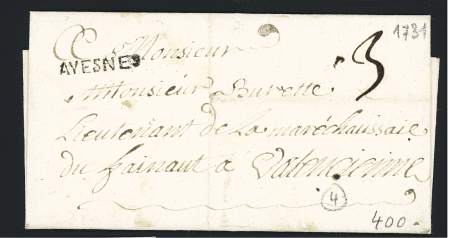 1731
A Monsieur
AVESNES
3
Monsieur Burette
Lieutenant de La maréchaussaie
du hainaut a Valencienne
4
400.